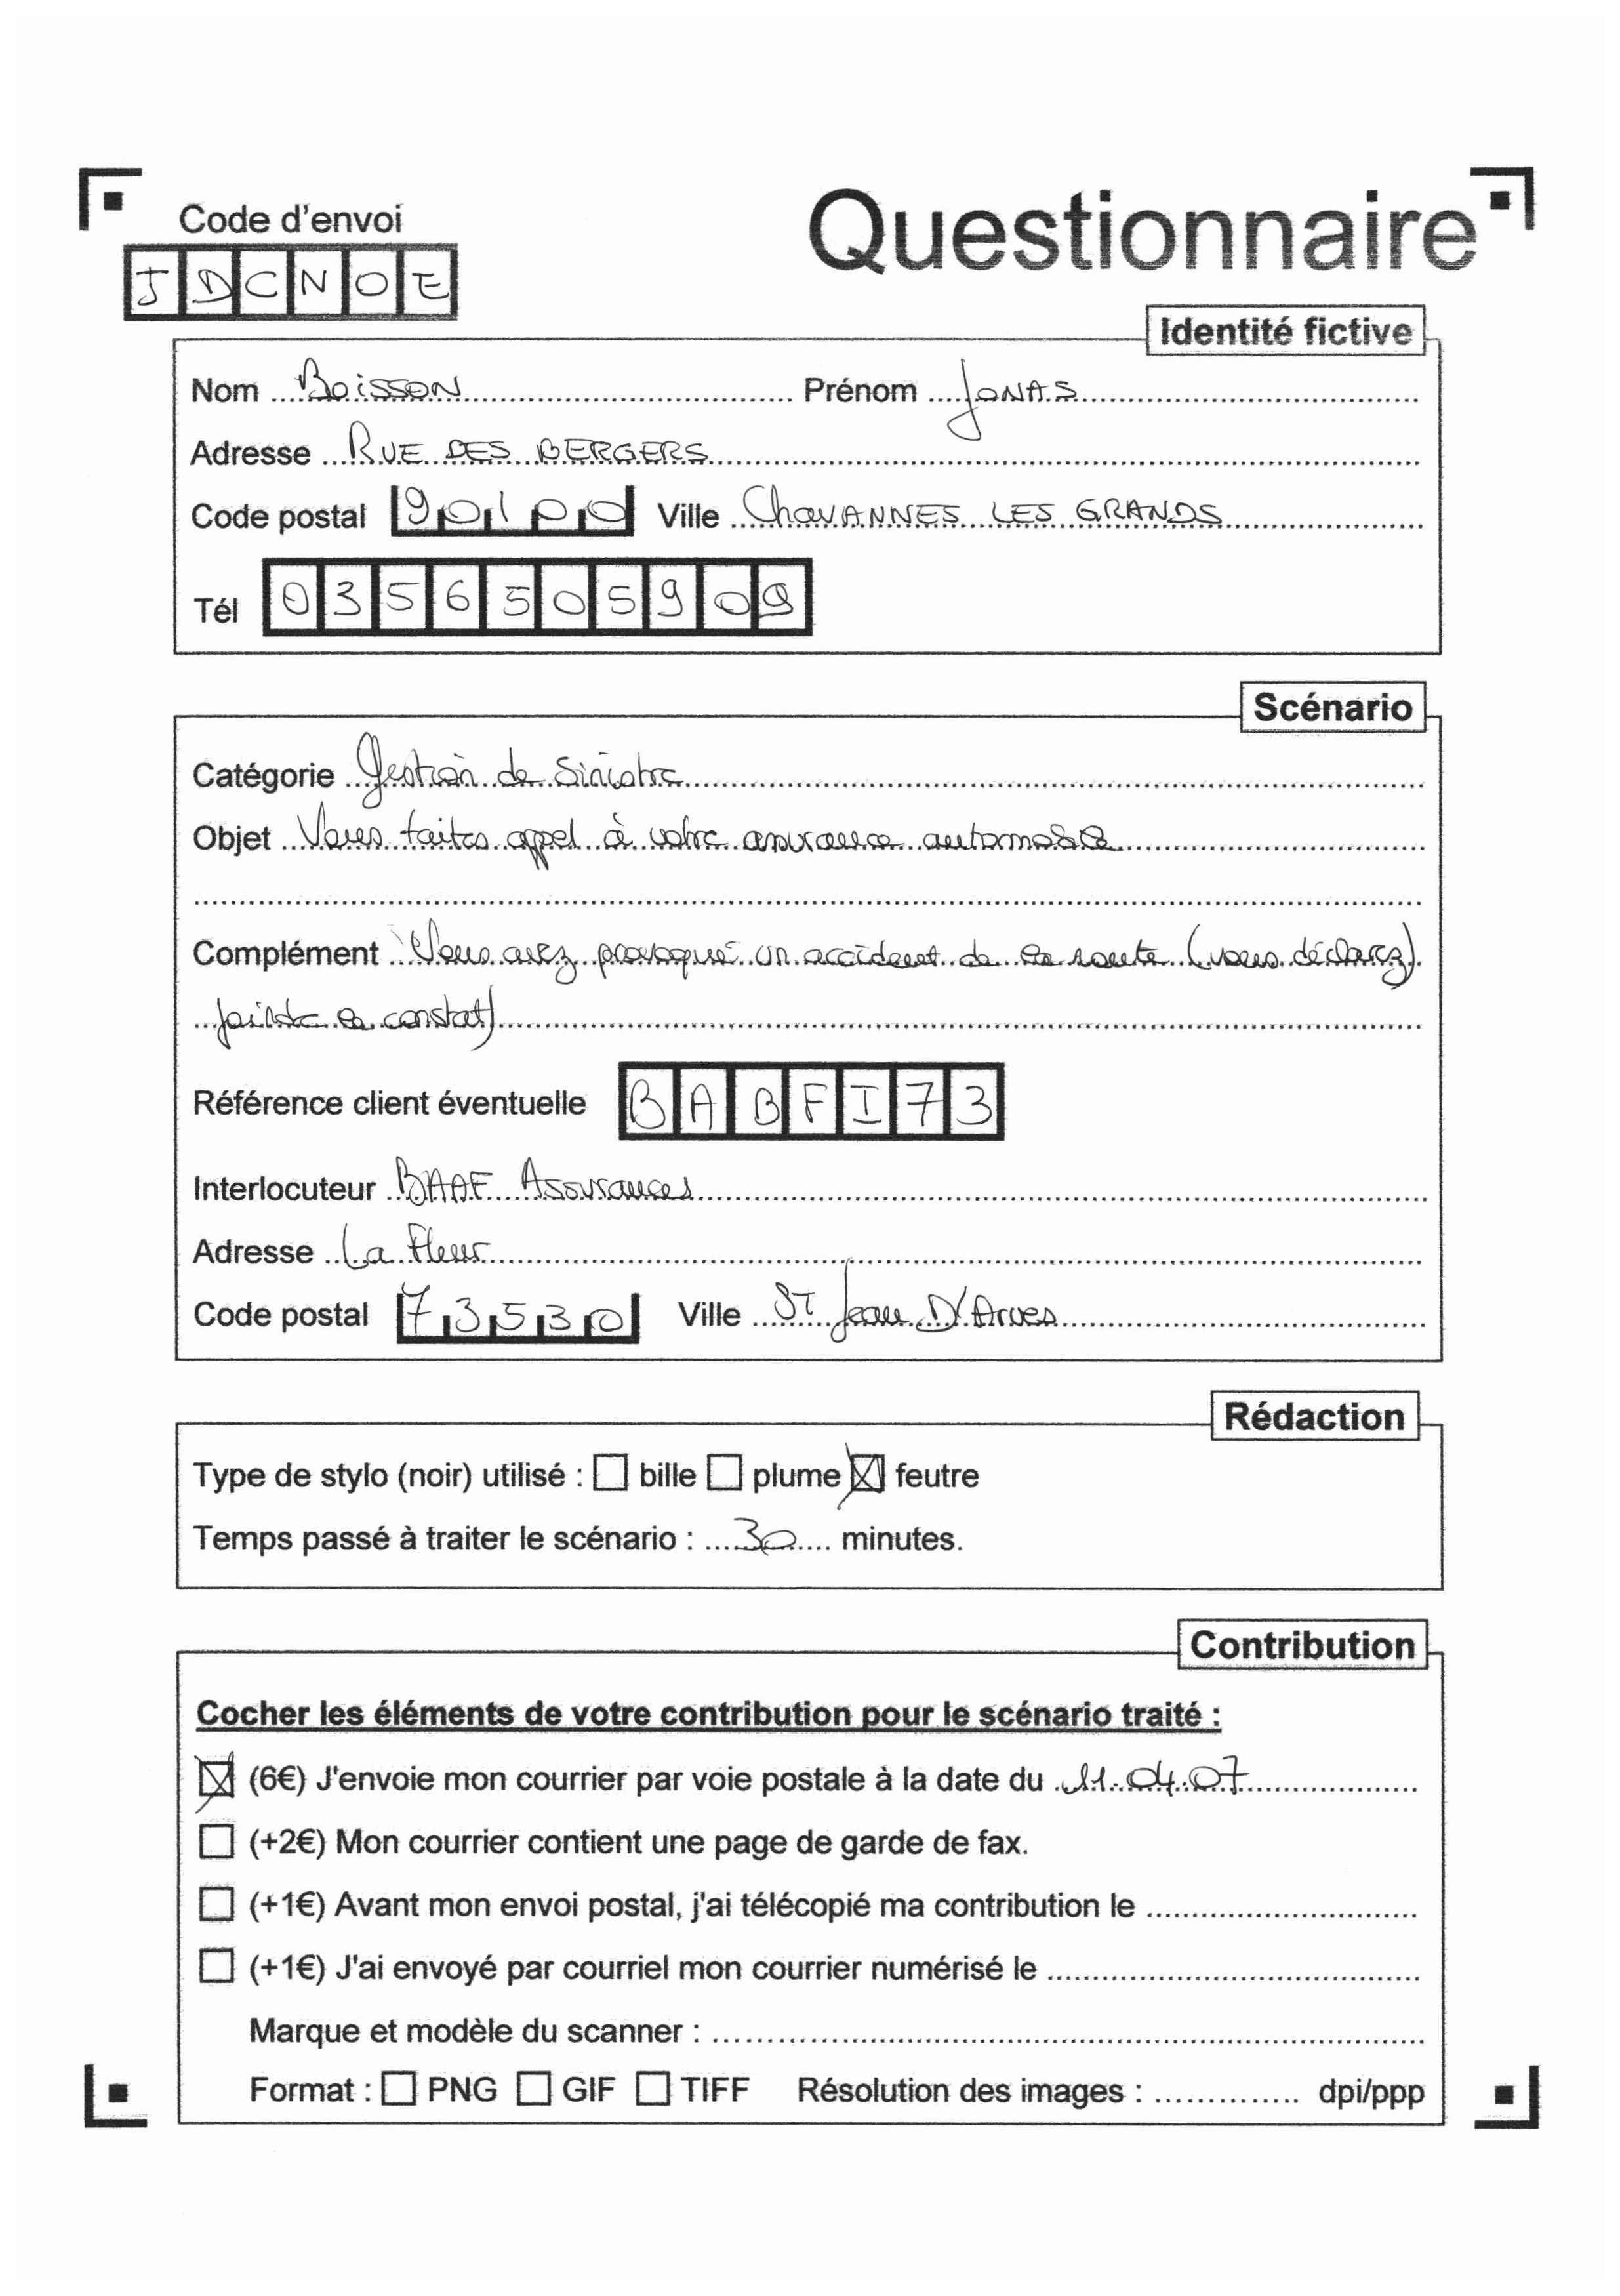 Code d'envoi
Questionnaire
JDCNOE
Identité fictive
Nom Boisson Prénom JONAS
Adresse RUE DES BERGERS
Code postal 90100 Ville ChavANNES LES GRANDS
Tél 0356505909
Scénario
Catégorie Gestion de Sinistre
Objet Vous faites appel à votre assurance automobile
Complément Vous avez provoqué un accident de la route (vous déclarez)
joindre le constat)
Référence client éventuelle BABFI73
Interlocuteur BAAF Assurances
Adresse La Fleur
Code postal 73530 Ville ST Jean D'Arves
Rédaction
Type de stylo (noir) utilisé : ☐ bille ☐ plume ☒ feutre
Temps passé à traiter le scénario : 30 minutes.
Contribution
Cocher les éléments de votre contribution pour le scénario traité :
☒ (6€) J'envoie mon courrier par voie postale à la date du 11.04.07
☐ (+2€) Mon courrier contient une page de garde de fax.
☐ (+1€) Avant mon envoi postal, j'ai télécopié ma contribution le
☐ (+1€) J'ai envoyé par courriel mon courrier numérisé le
Marque et modèle du scanner :
Format : ☐ PNG ☐ GIF ☐ TIFF Résolution des images : dpi/ppp